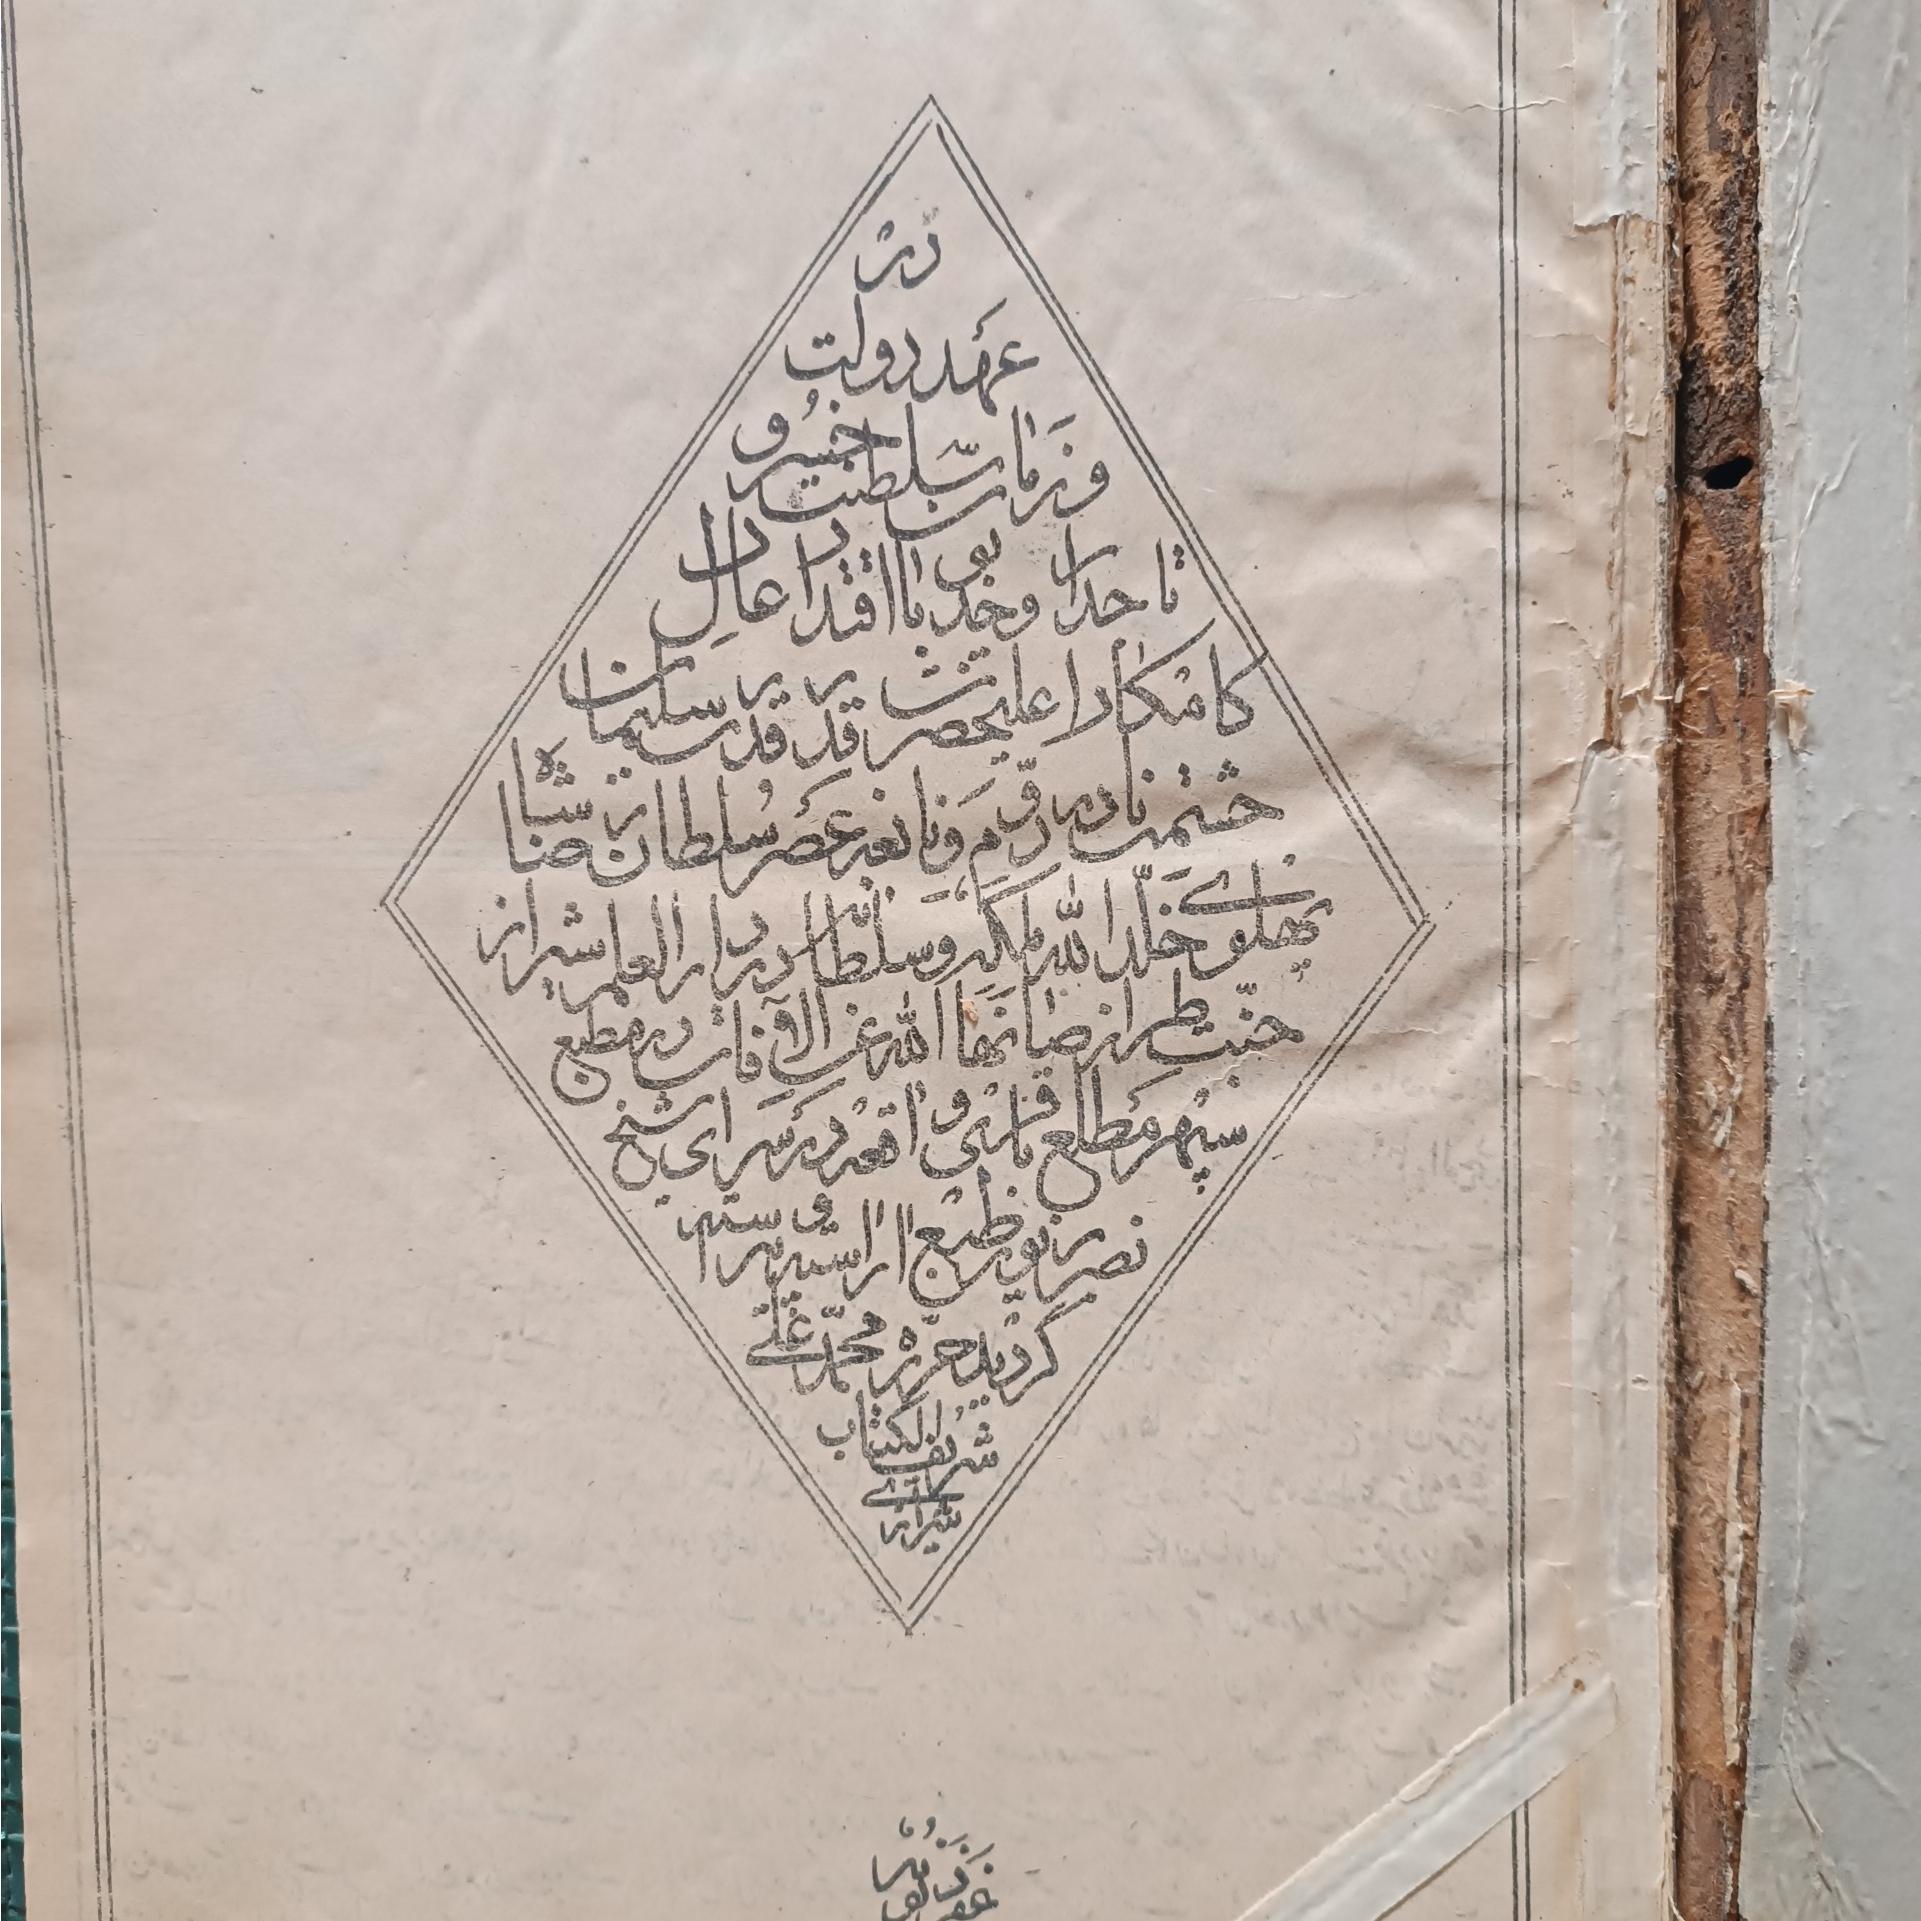 در
عهد دولت
و زمان سلطنت خسرو
تاجدار و خدیو با اقتدار عادل
کامکار اعلیحضرت قدر قدرت سلیمان
حشمت نادر دوّم و نابغه عصر سُلطان رضا شاه
پهلوی خلّد الله ملکه و سلطانه در دار العلم شیراز
جنّت طراز صانها الله عن الافات در مطبع
سپهر مطلع واقعه در سرای
بزیور طبع اراسته و پیراسته
گردید حرّره محمّد علی
شریف الکتاب
شیرازی